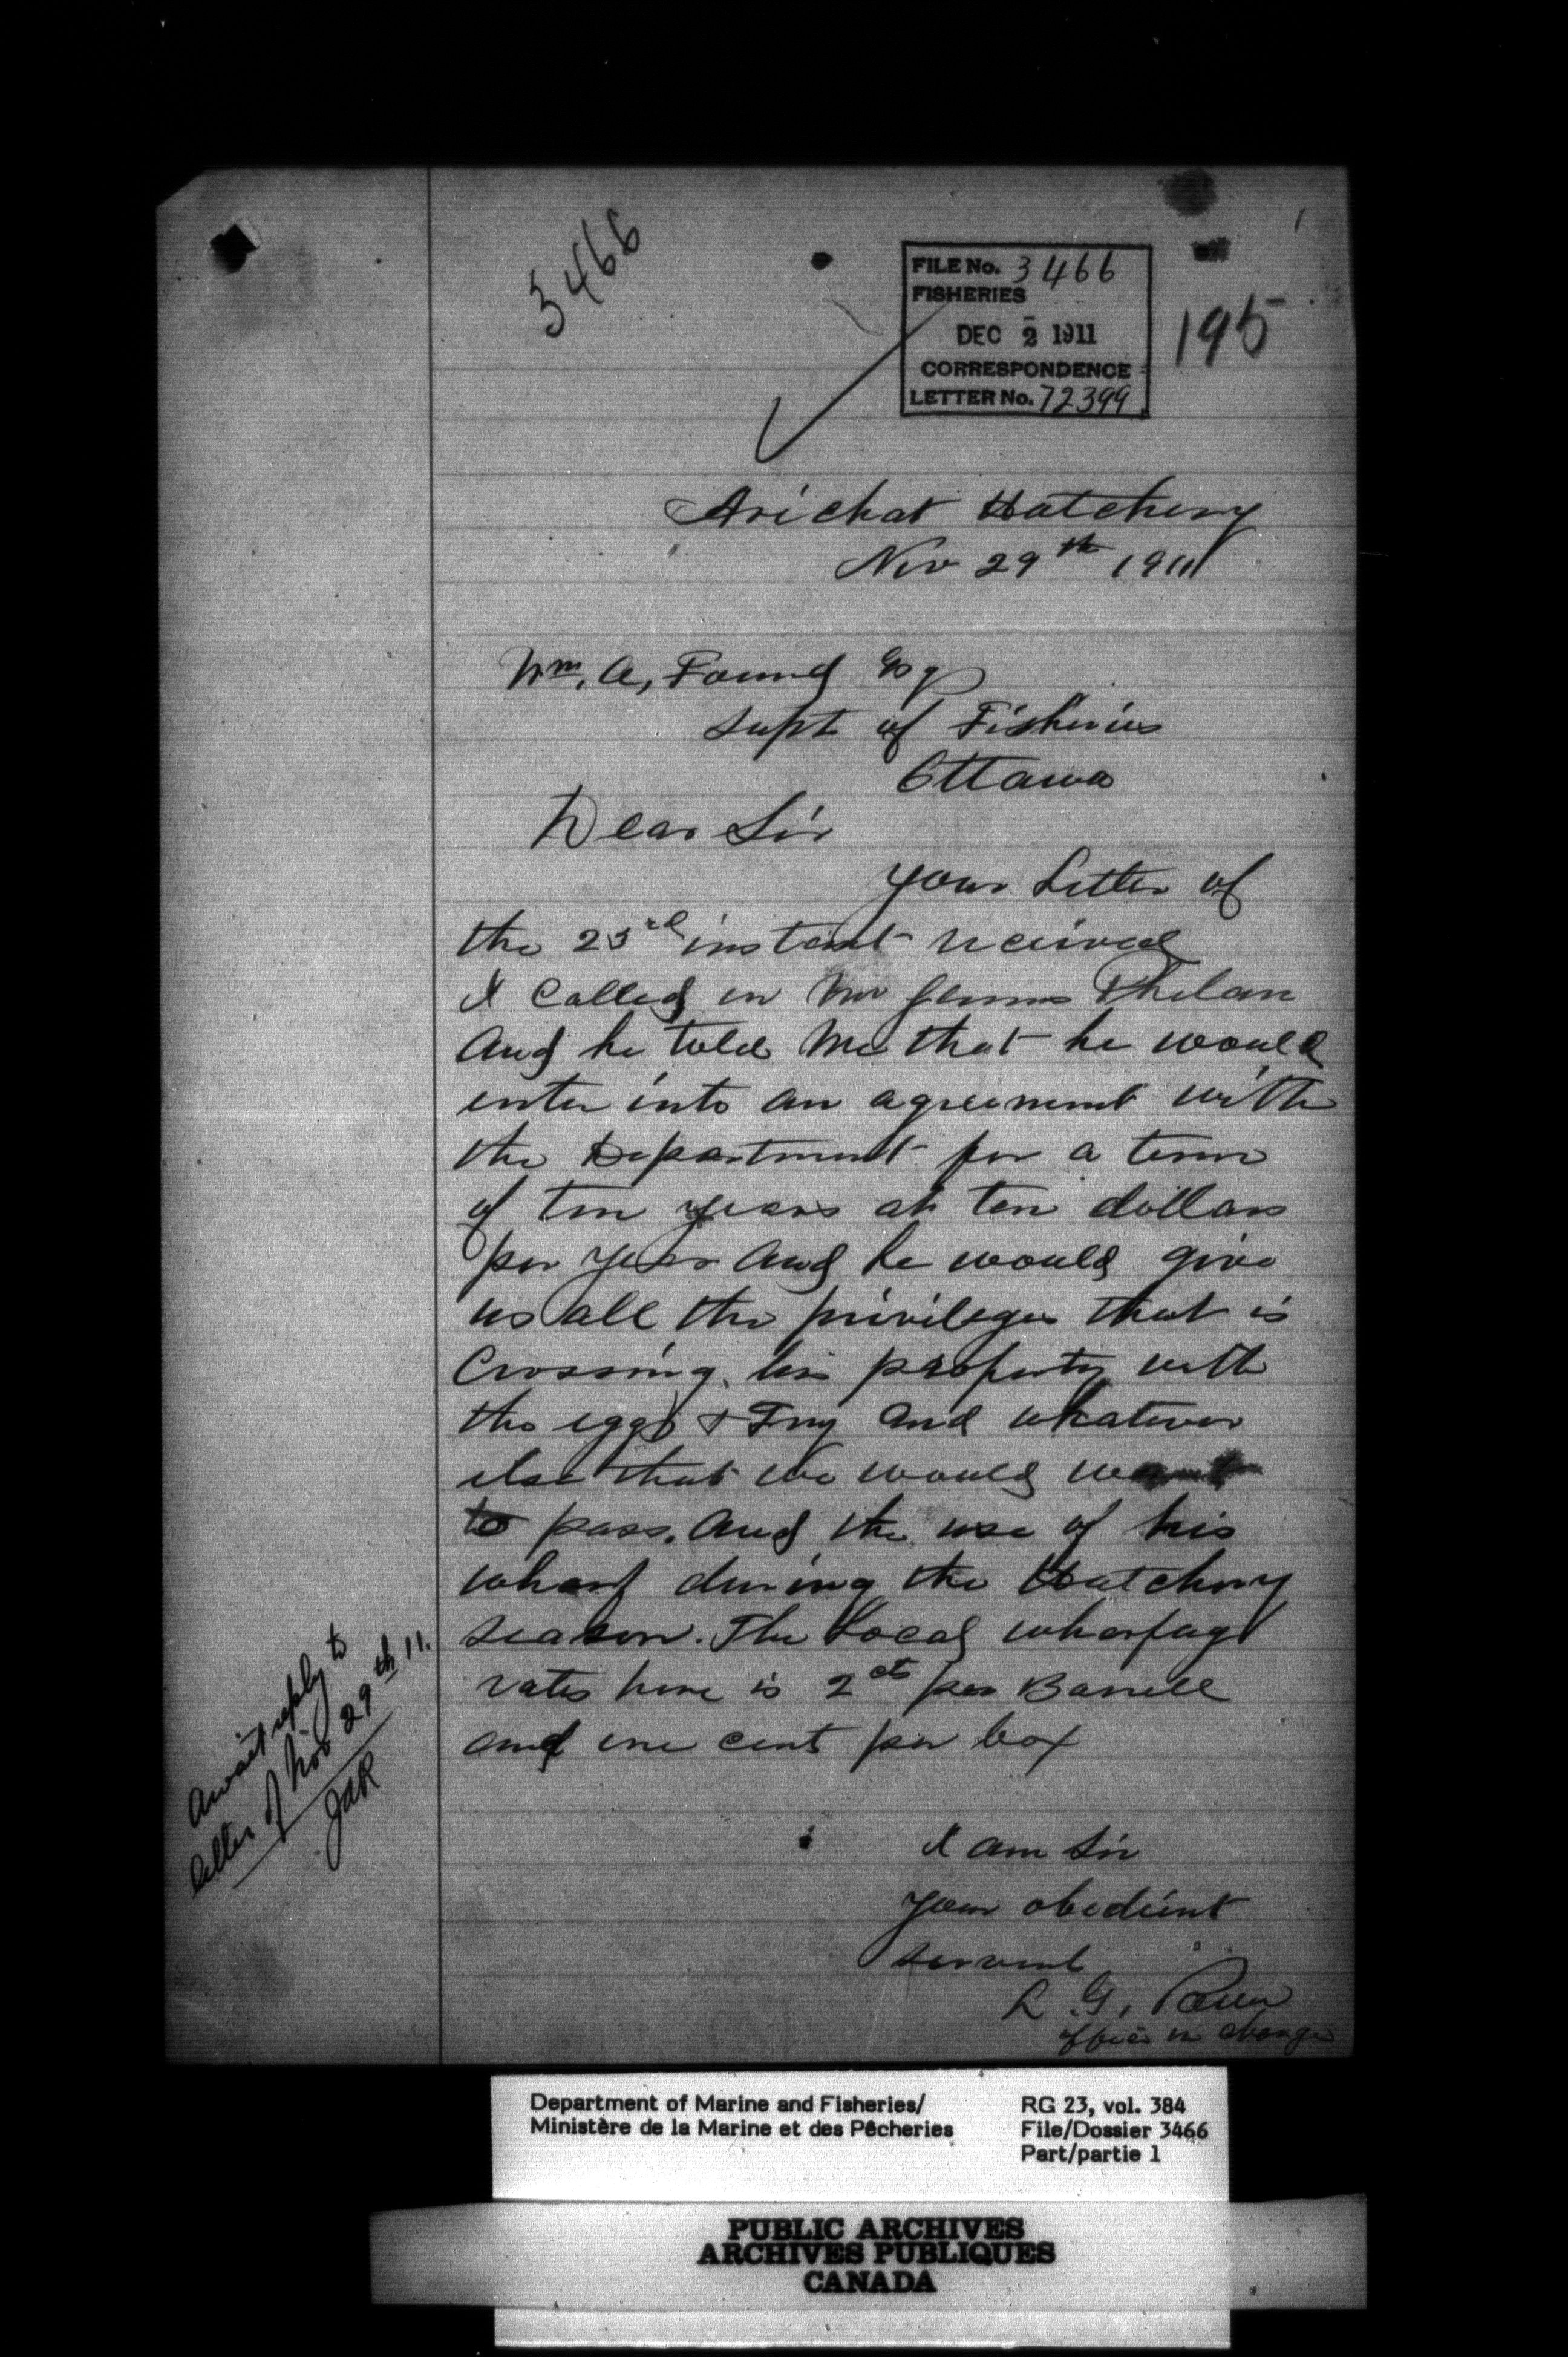 3466
FILE No. 3466
FISHERIES
DEC 2 1911
CORRESPONDENCE
LETTER No. 72399
195
Arichat Hatchery
Nov 29th 1911
Wm. A, Found Esq
Supt of Fisheries
Ottawa
Dear Sir
your Letter of
the 23rd instant received
I Called on Mr James Phelan
And he told Me that he would
enter into an agreement with
the Department for a term
of ten years at ten dollars
per year And he would give
us all the privileges that is
Crossing his property with
the eggs & Fry and whatever
else that we would want
to pass. And the use of his
wharf during the Hatchery
season. The Local wharfage
rates here is 2cts per Barrell
and one cent per box
I am Sir
your obedient
servant
L. G.
officer in charge
Await reply to
letter of Nov 29th 11.
JAR
Department of Marine and Fisheries/
Ministère de la Marine et des Pêcheries
RG 23, vol. 384
File/Dossier 3466
Part/partie 1
PUBLIC ARCHIVES
ARCHIVES PUBLIQUES
CANADA